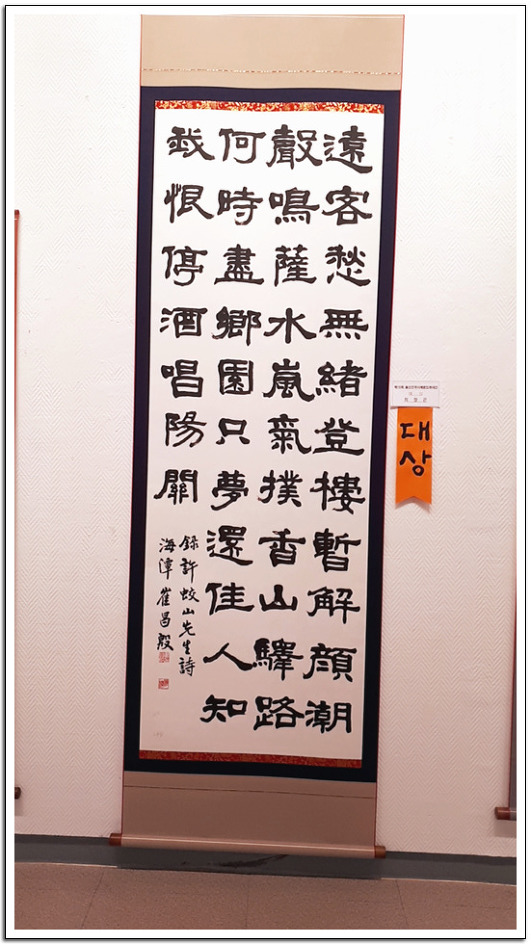 遠客愁無緒登樓暫解顔潮
聲鳴薩水嵐氣撲香山驛路
何時盡鄉園只夢還佳人知
我恨停酒唱陽關
錄許蛟山先生詩
海潭 崔昌殷
대상